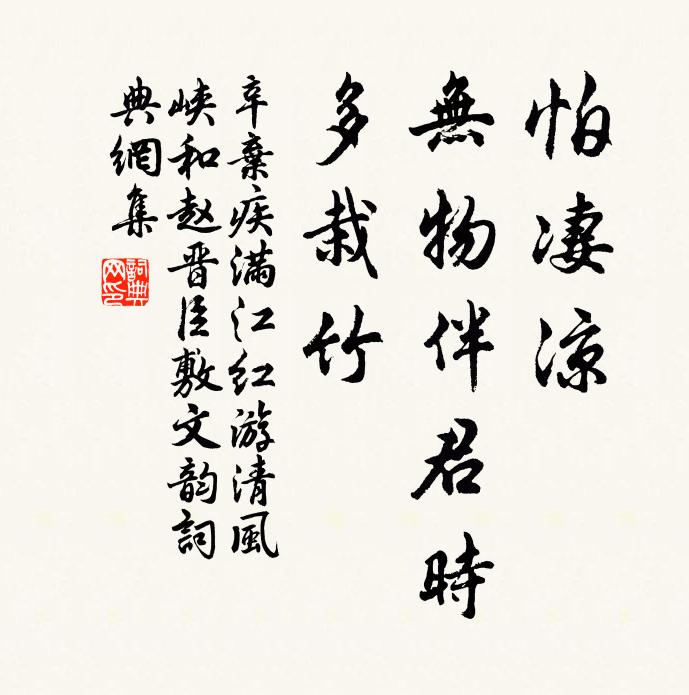 怕凄凉
無物伴君時
多栽竹
辛棄疾滿江紅游清風
峽和赵晋臣敷文韵詞
典網集
詞典
网印